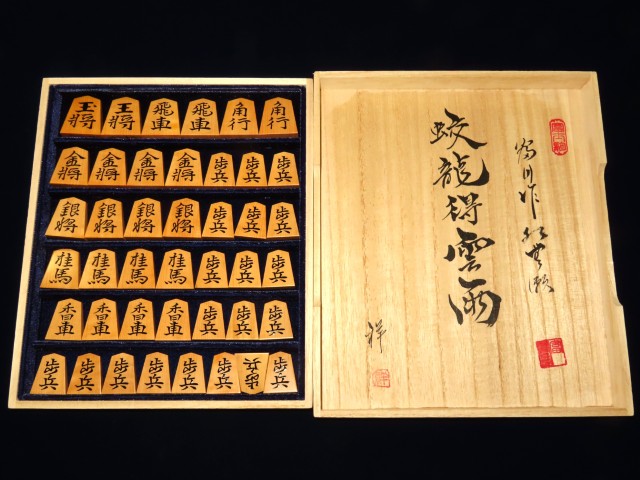 玉將 王將 飛車 飛車 角行 角行
金將 金將 金將 金將 歩兵 歩兵 歩兵
銀將 銀將 銀將 銀將 歩兵 歩兵 歩兵
桂馬 桂馬 桂馬 桂馬 歩兵 歩兵 歩兵
香車 香車 香車 香車 歩兵 歩兵 歩兵
歩兵 歩兵 歩兵 歩兵 歩兵 歩兵 歩兵 歩兵
川作
蛟龍得雲雨
祥